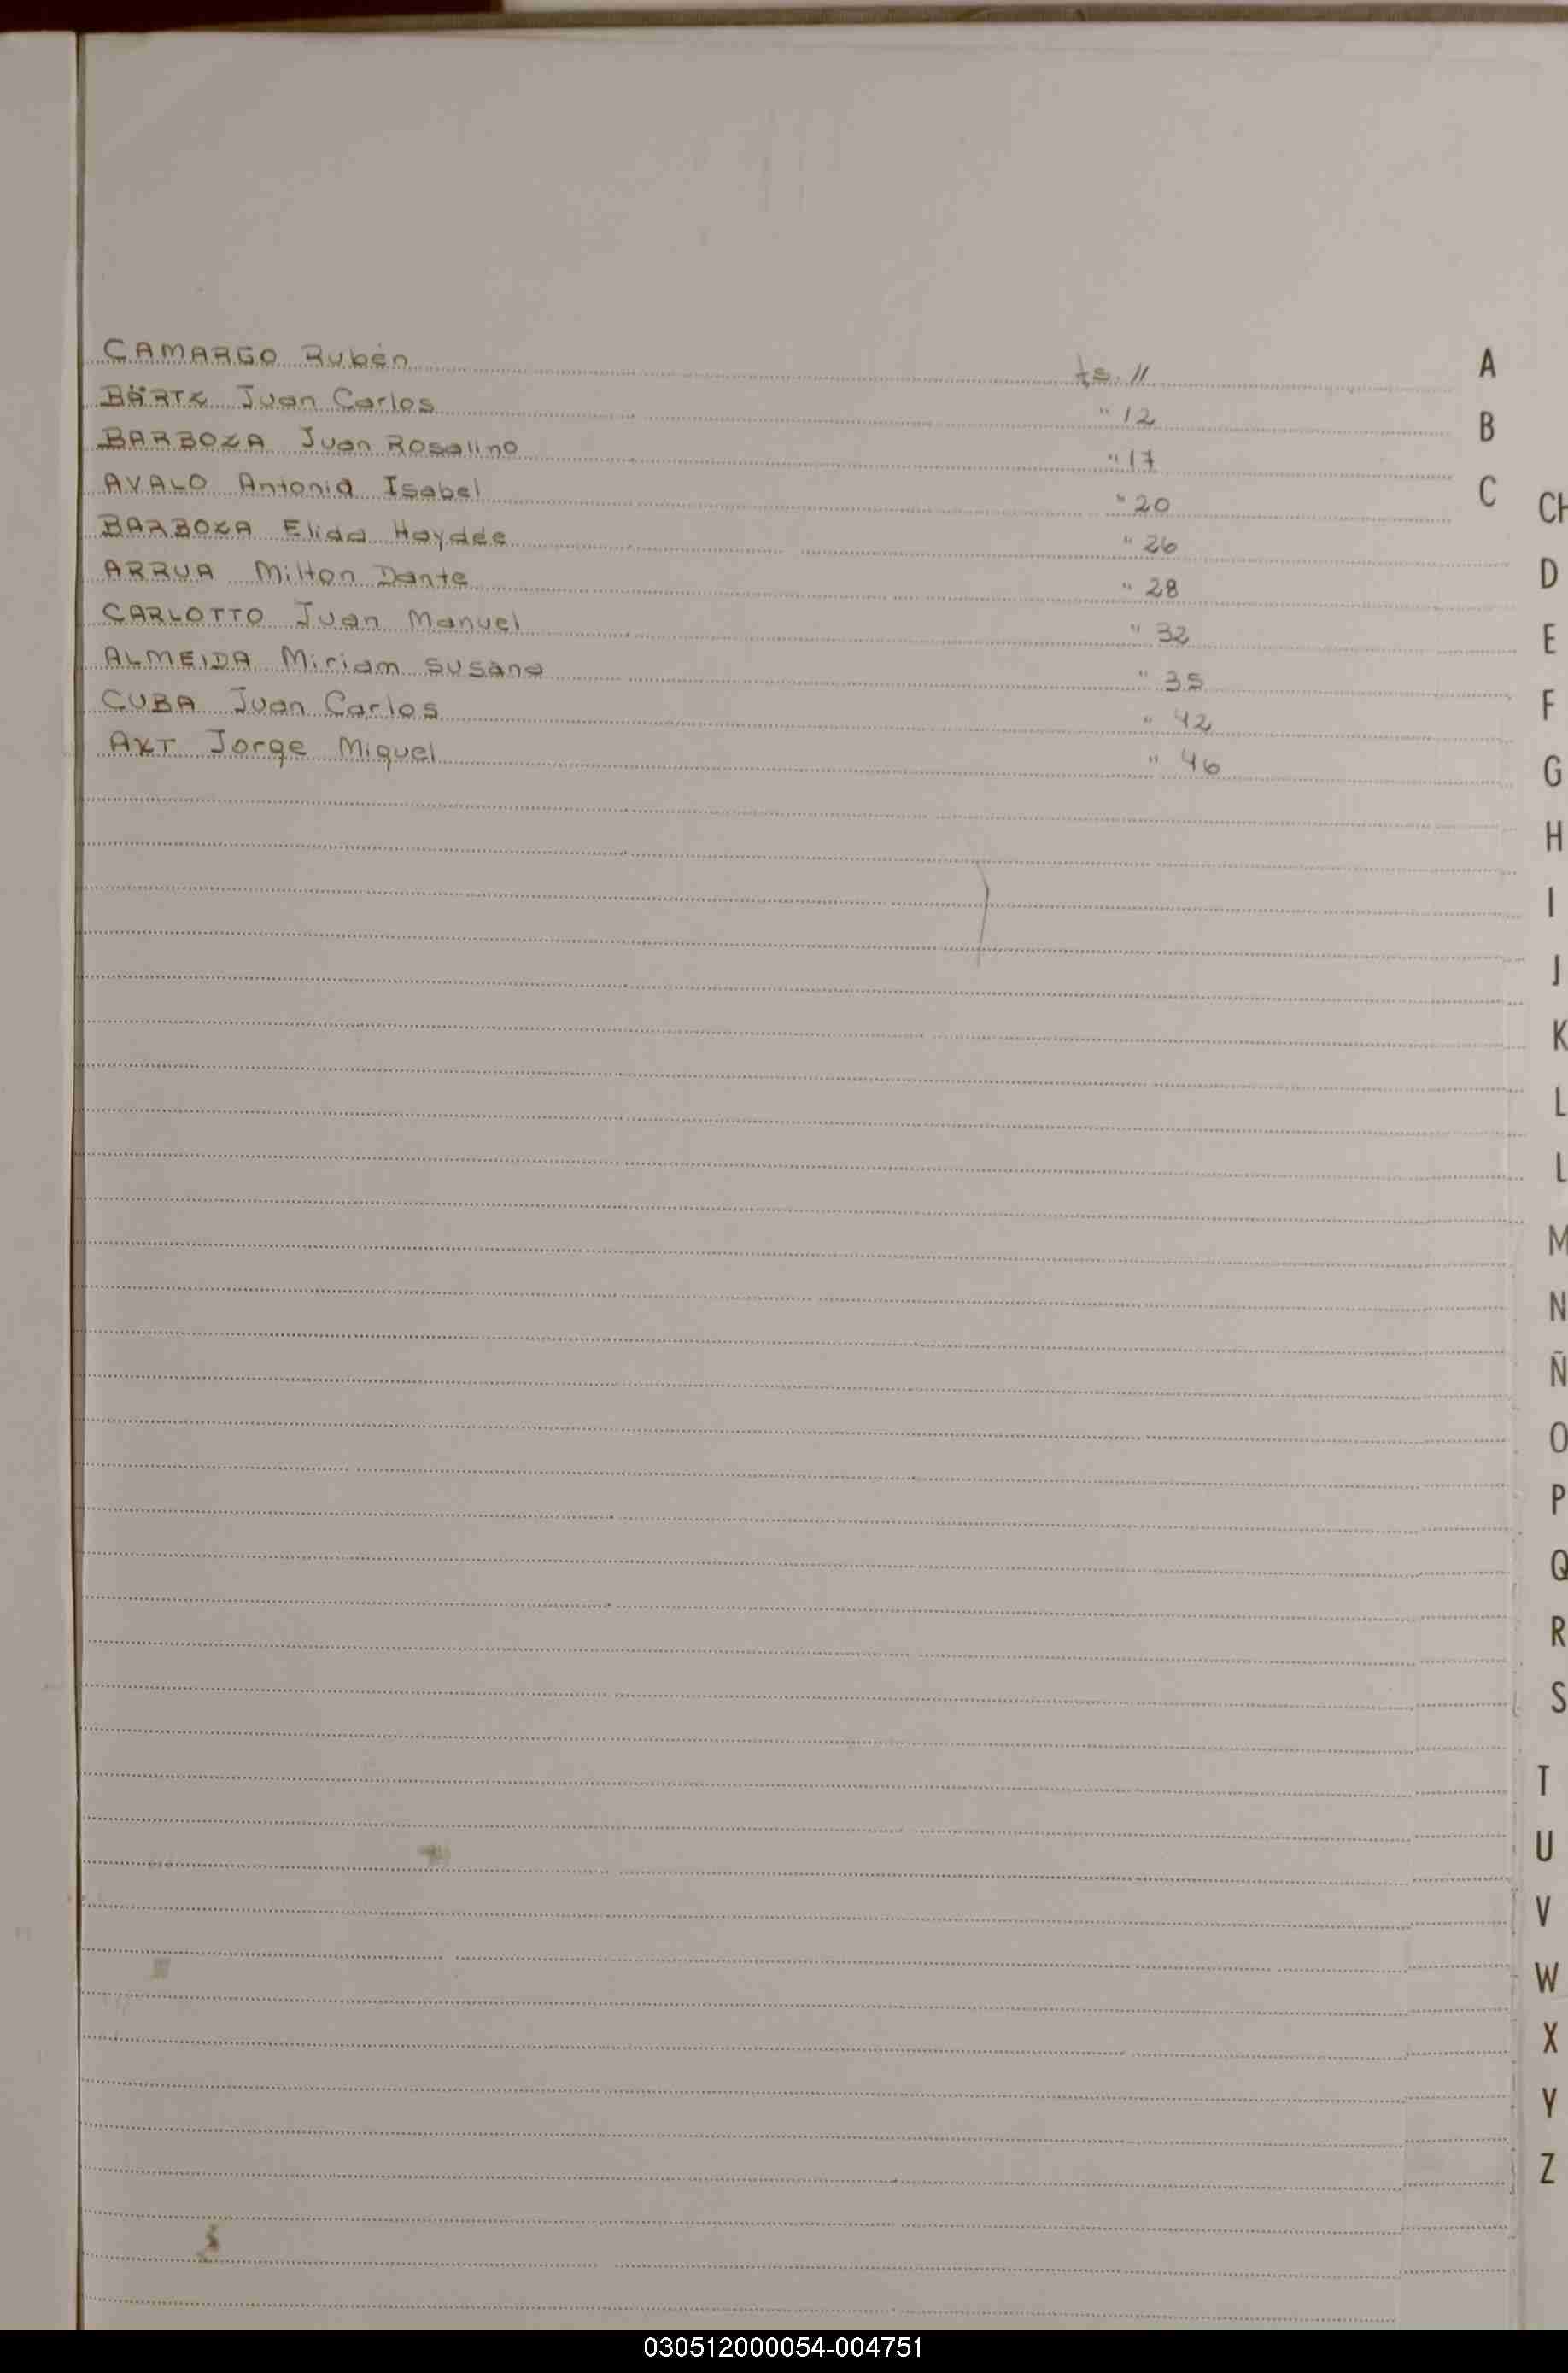 CAMARGO Rubén fs. 11
BÄRTZ Juan Carlos " 12
BARBOZA Juan Rosalino " 17
AVALO Antonia Isabel " 20
BARBOZA Elida Haydde " 26
ARRUA Milton Dante " 28
CARLOTTO Juan Manuel " 32
ALMEIDA Miriam Susana " 35
CUBA Juan Carlos " 42
AXT Jorge Miguel " 46
A
B
C
CH
D
E
F
G
H
I
J
K
L
L
M
N
Ñ
O
P
Q
R
S
T
U
V
W
X
Y
Z
030512000054-004751